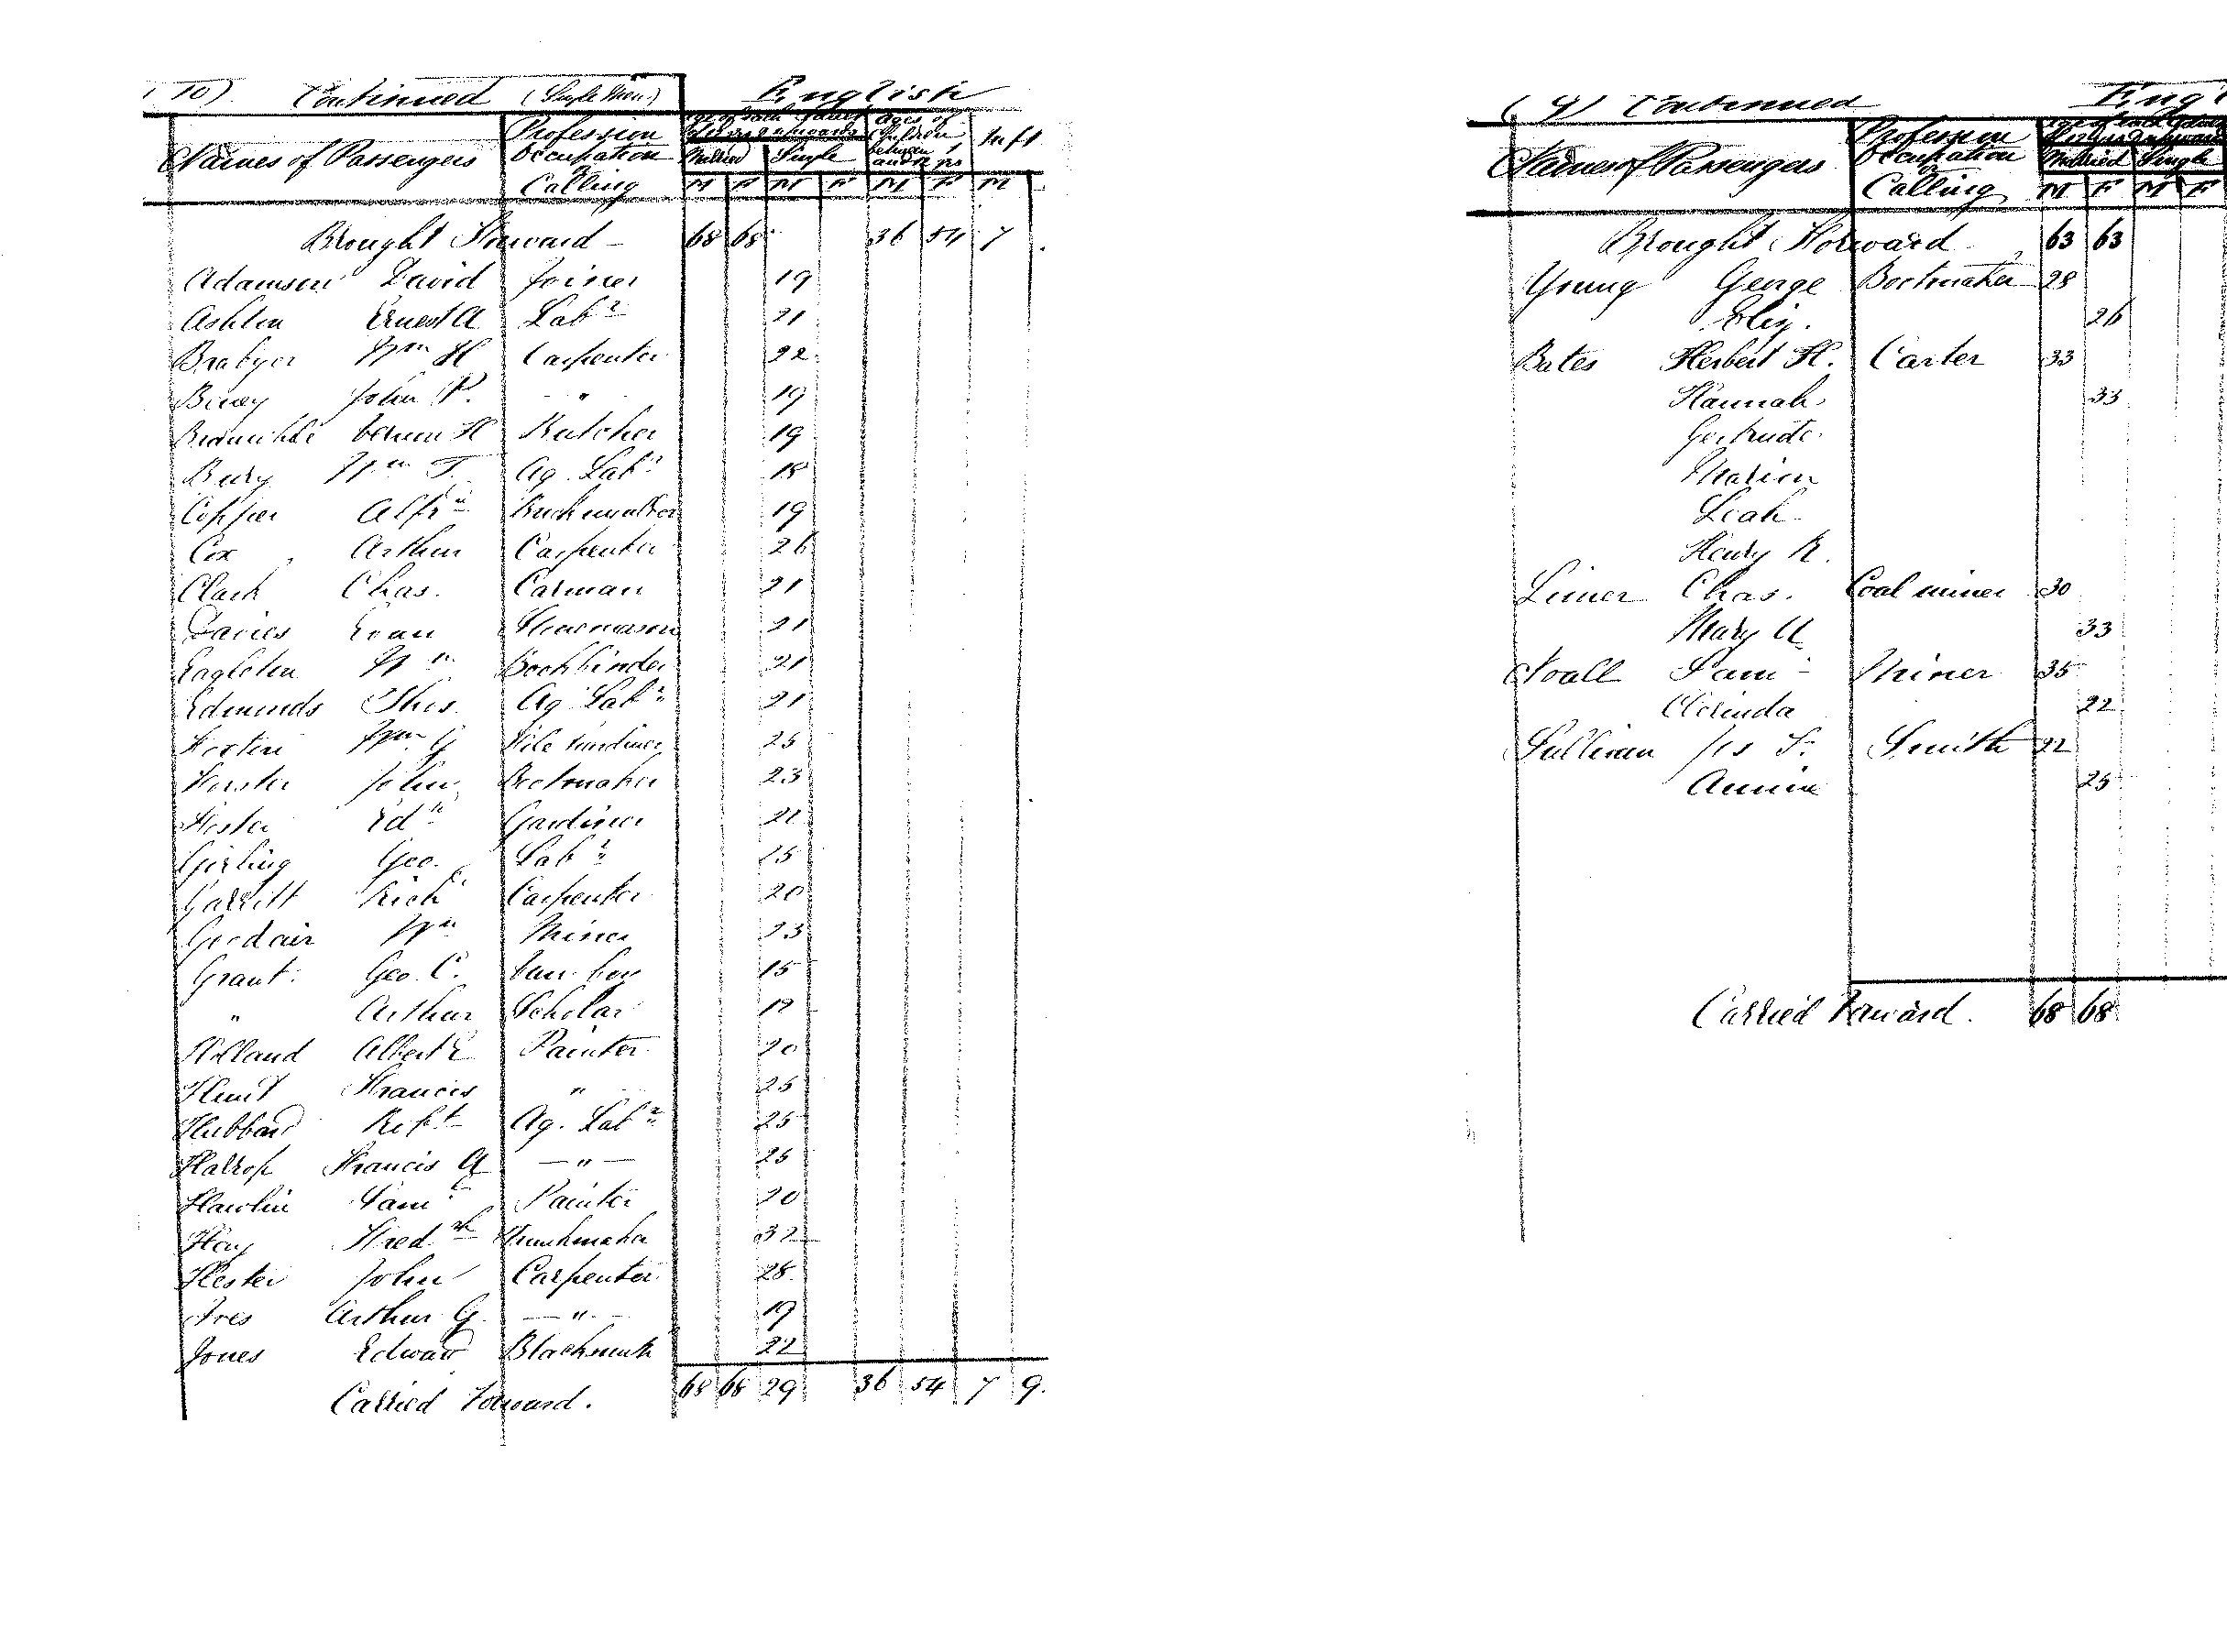 (10) Continued (Single Men) English
Names of Passengers Profession Occupation Calling Married Single Ages of Children between 1 and 12 yrs Inft
M F M F M F M
Brought Forward - 68 68 36 54 7
Adamson David Joiner 19
Ashton Ernest A Labr 21
Brabyer Wm H Carpenter 22
John P. " 19
H Butcher 19
Bury Wm T. Ag. Labr 18
Copper Alfd 19
Cox Arthur Carpenter 26
Clark Chas. Carman 21
Davies Evan Stonemason 21
Eagleton Wm Bookbinder 21
Edmunds Thos. Ag Labr 21
Wm G 25
Forster John Bootmaker 23
Foster Edn Gardiner 21
Girling Geo. Labr 25
Garritt Richd Carpenter 20
Wm Miner 23
Grant. Geo. C. Van boy 15
" Arthur Scholar 12
Holland Albert E Painter 20
Hunt Francis " 25
Hubbard Robt Ag. Labr 25
Harrop Francis A — " — 25
Saml Painter 20
Hoy Fredk Trunkmaker 32
Hester John Carpenter 28
Ives Arthur G. — " — 19
Jones Edward Blacksmith 22
Carried Forward. 68 68 29 36 54 7 9.
(9) Continued Engl
Names of Passengers Profession Occupation Calling Married Single
M F M F
Brought Forward 63 63
Young George Bootmaker 28
Eliz. 26
Bates Herbert H. Carter 33
Hannah 33
Gertrude.
Marion
Leah.
Henry R.
Limer Chas. Coal miner 30
Mary A 33
Noall Saml Miner 35
Clorinda 22
Sullivan Jas F. Smith 22
Annie 25
Carried Forward. 68 68